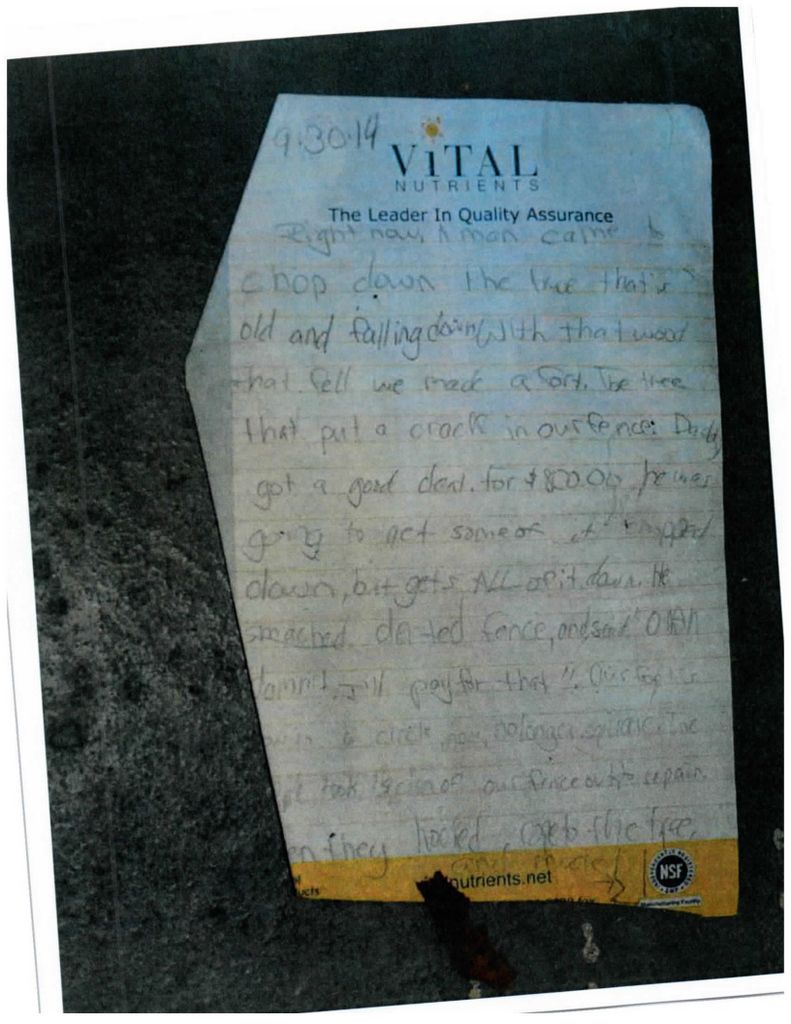 9.30.14
ViTAL
NUTRIENTS
The Leader In Quality Assurance
Right now, A man came
chop down the tree that's
old and falling down With that wood
that fell we made a fort. The tree
that put a crack in our fence. Daddy
got a good deal. for $800.00 he was
going to get some of it chopped
down, but gets ALL of it down. He
smached dented fence, and said "OHH
damnit, I'll pay for that".
circle now, no longer square. The
took of our fence out to repair.
they to the tree,
nutrients.net
NSF